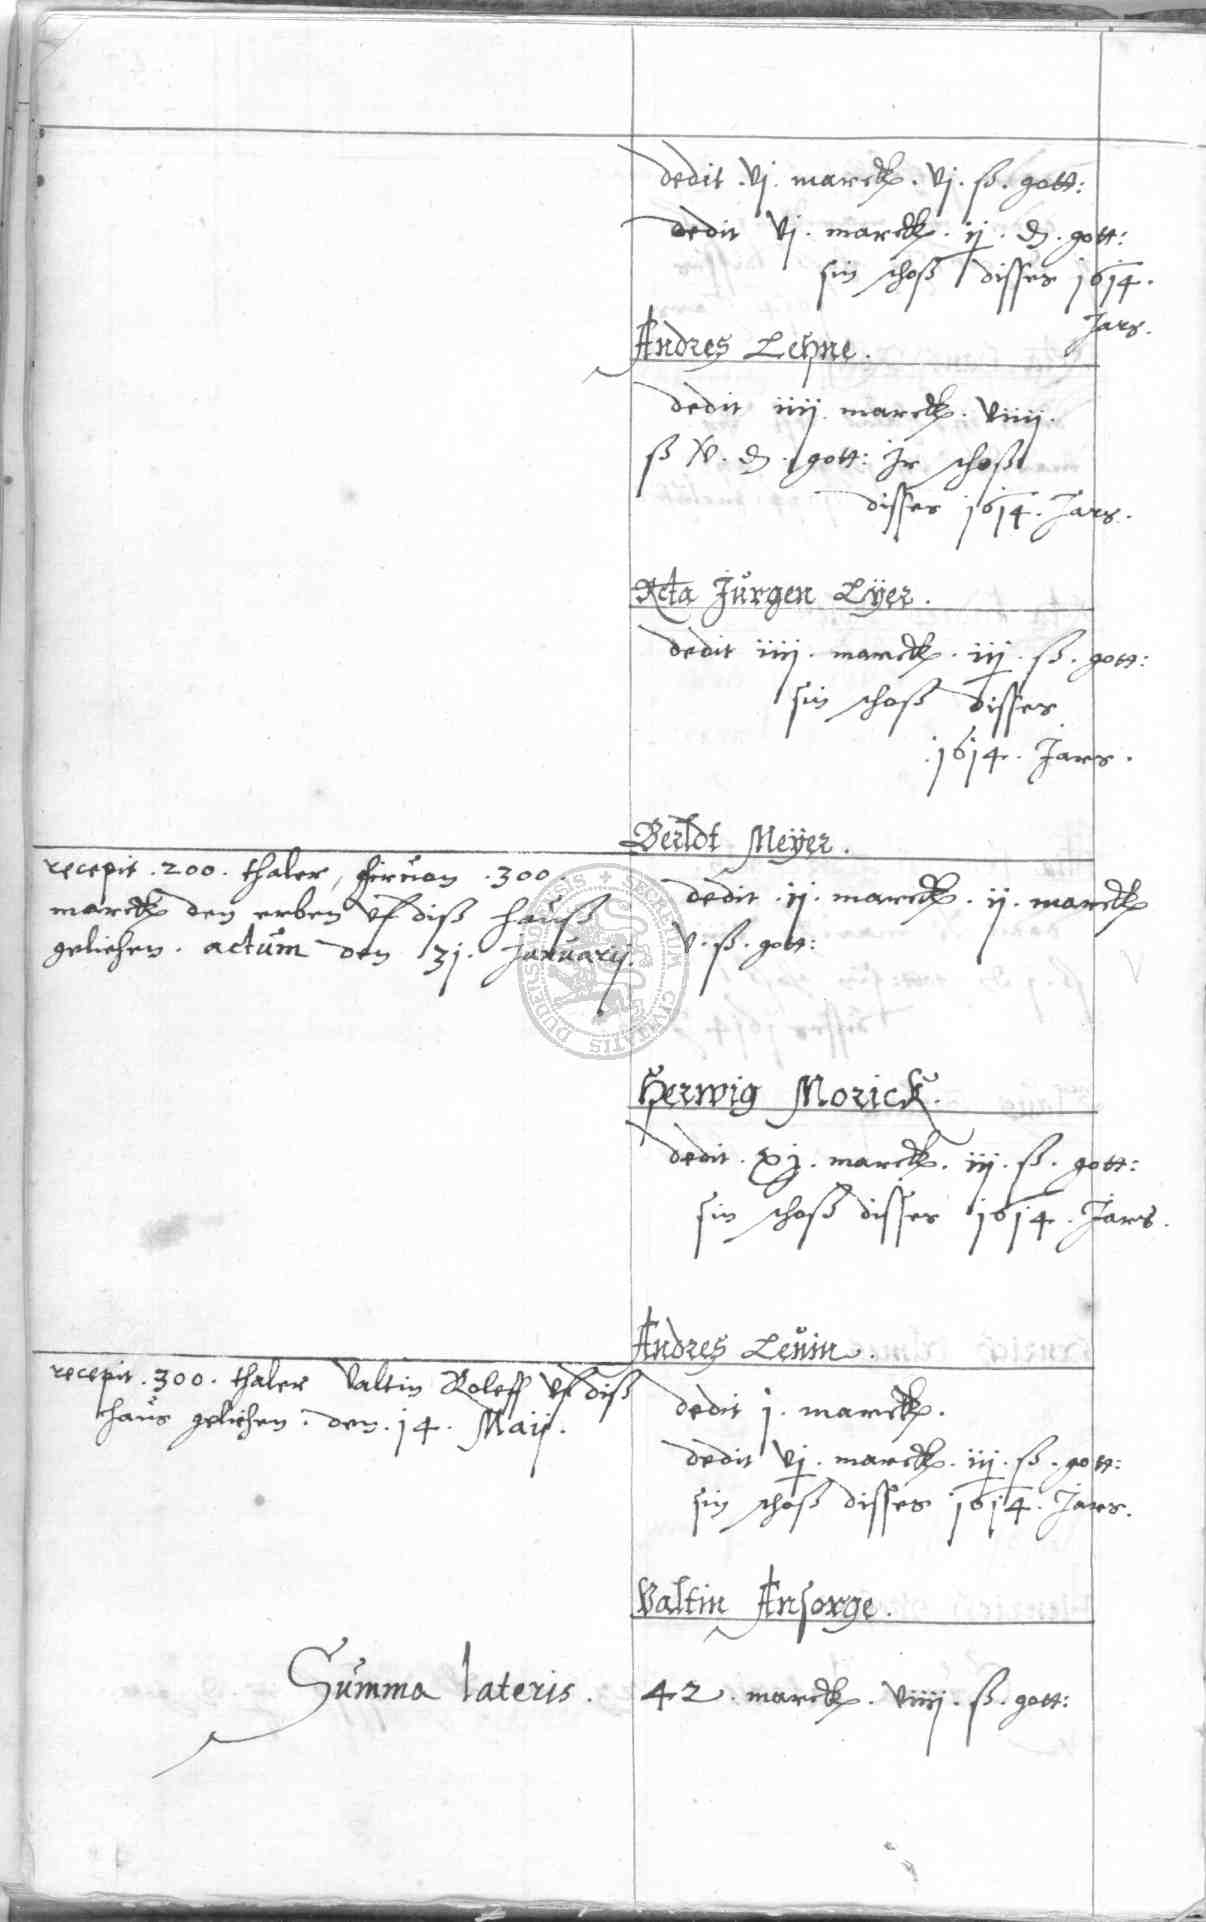 dedit . vj . marck . vj . ß . gott:
dedit vj . marck . ij . d . gott:
sin schoß disses 1614 .
Jars .
Andres Lehne .
dedit iiij marck . viiij .
ß iv . d . gott: Jr schoß
disses 1614 . Jars .
Rcta Jürgen Lÿer .
dedit iiij . marck . iij . ß . gott:
sin schoß disses
. 1614 . Jars .
Berldt Meÿer .
recepit . 200 . thaler , hiruon . 300 .
marck den erben vf diß hauß
geliehen . actum den 31 . Januarij .
dedit . ij . marck . ij . marck
v . ß . gott:
Herwig Morick .
dedit . xj . marck . iij . ß . gott:
sin schoß disses 1614 . Jars .
Andres Leuin .
recepit . 300 . thaler Valtin Roleff vf diß
haus geliehen : den . 14 . Maij .
dedit j . marck .
dedit vj . marck . iij . ß . gott:
sin schoß disses 1614 . Jars .
Valtin Ansorge .
Summa lateris . 42 . marck . viiij . ß . gott:
SECRETUM CIVITATIS DUDERSTADENSIS